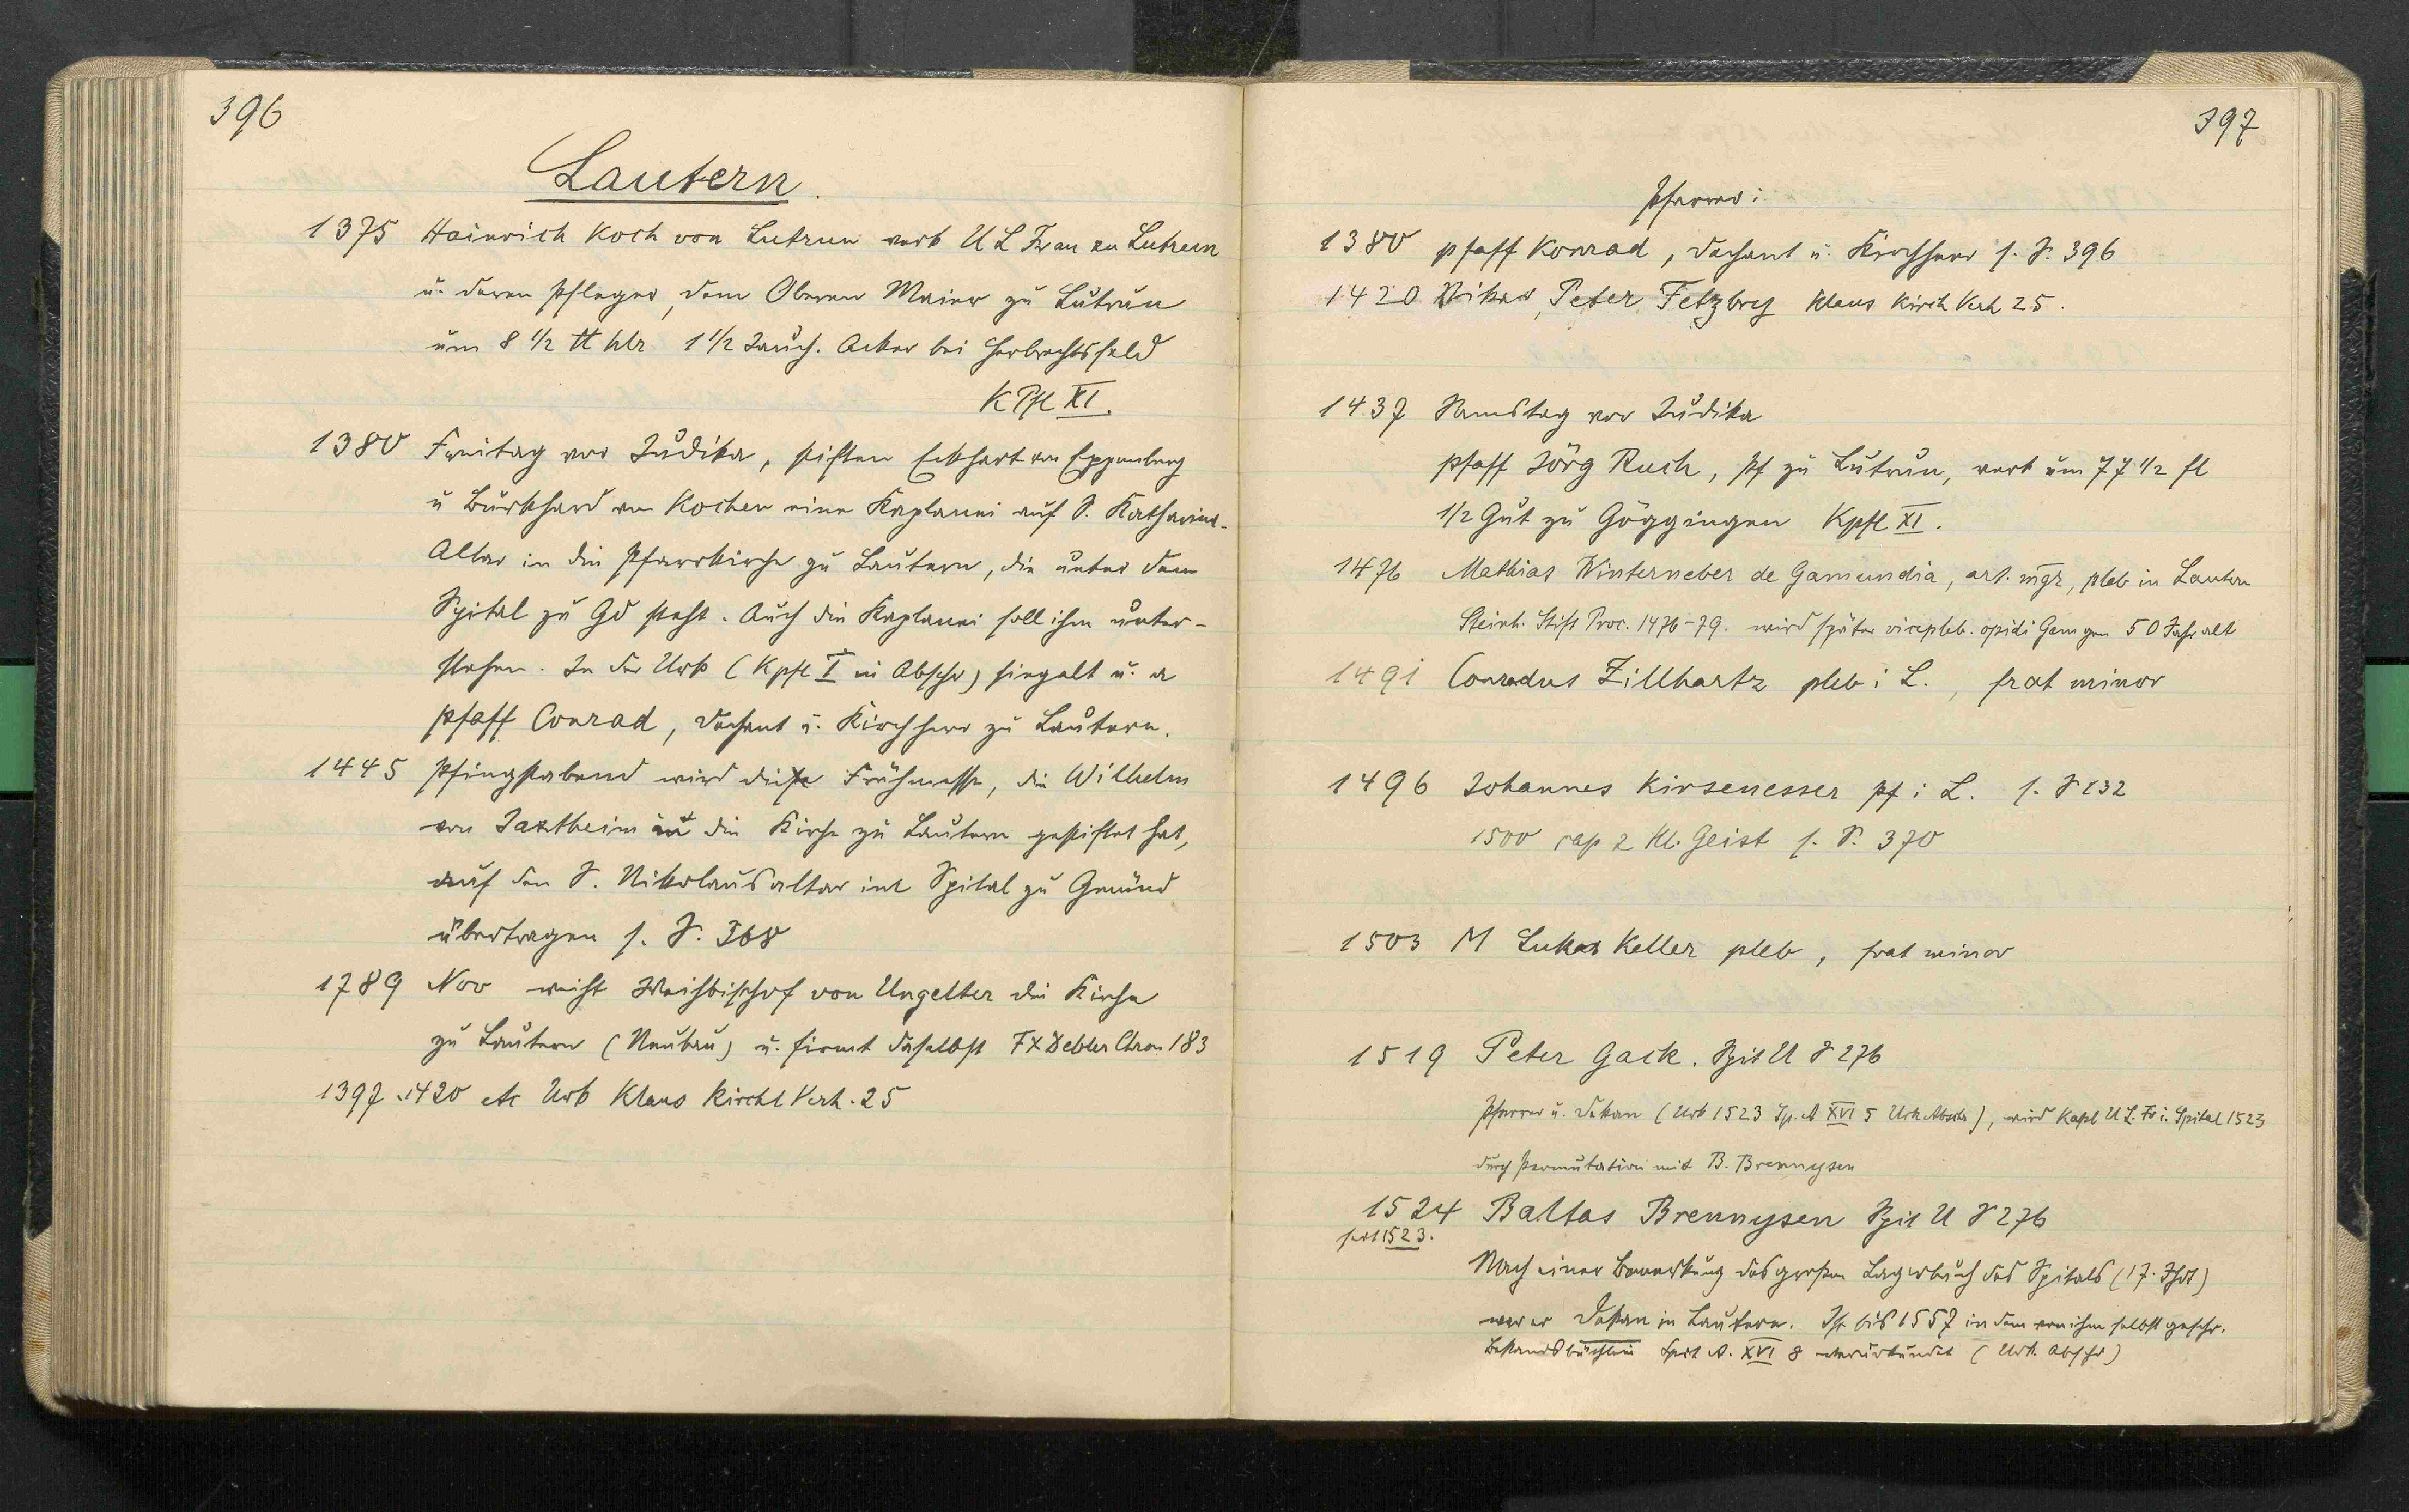 396
Lautern.
1375 Hainrich Koch von Lutrun verk U L Frau zu Lutrun
u. deren Pfleger, dem Oberen Maier zu Lutrun
um 8 1/2 ℔ hlr 1 1/2 Jauch. Acker bei Herbrechtsfeld
K Pfl XI.
1380 Freitag vor Judika, stiften Eckhart von Eppenberg
u Burkhard von Kochen eine Kaplanei auf S. Katharina-
Altar in die Pfarrkirche zu Lautern, die unter dem
Spital zu Gd steht. Auch die Kaplanei soll ihm unter-
stehen. In der Urk (Kpfl I in Abschr) siegelt u. a
Pfaff Conrad, Dechant u. Kirchherr zu Lautern.
1445 Pfingstabend wird die Frühmesse, die Wilhelm
von Jaxtheim in die Kirche zu Lautern gestiftet hat,
auf den S. Nikolausaltar im Spital zu Gmünd
übertragen s. S. 368
1789 Nov weiht Weihbischof von Ungelter die Kirche
zu Lautern (Neubau) u. firmt daselbst FX Debler Chron 183
1397. 1420 etc Urk Klaus Kirchl Verh. 25
397
Pfarrer:
1380 Pfaff Konrad, Dechant u. Kirchherr s. S. 396
1420 Vikar, Peter Fetzbrey Klaus Kirch Verh 25.
1437 Samstag vor Judika
Pfaff Jörg Ruch, Pf zu Lutrun, verk um 77 1/2 fl
1/2 Gut zu Göggingen Kpfl XI.
1476 Mathias Winterneber de Gamundia, art. mgr, pleb in Lautern
Steinh. Stift Proc. 1476-79. wird später vicepleb. opidi Gem gen 50 Jahr alt
1491 Conradus Zillhartz pleb i L., frat minor
1496 Johannes Kirsenesser pf i L. s. S 132
1500 cap z Hl. Geist s. S. 370
1503 M Lukas Keller pleb, frat minor
1519 Peter Gack. Spit U S 276
Pfarrer u. Dekan (Urk 1523 Sp. A XVI 5 Urk Abschr), wird Kapl U L. Fr i. Spital 1523
durch Permutation mit B. Brennysen
1524 Baltas Brennysen Spit U S 276
seit 1523.
Nach einer Bemerkung des großen Lagerbuch des Spitals (17. Jhdt)
war er Dekan in Lautern. Ist bis 1557 in dem von ihm selbst geschr.
Bestandsbüchlein Spit A. XVI 8 beurkundet (Urk. Abschr)